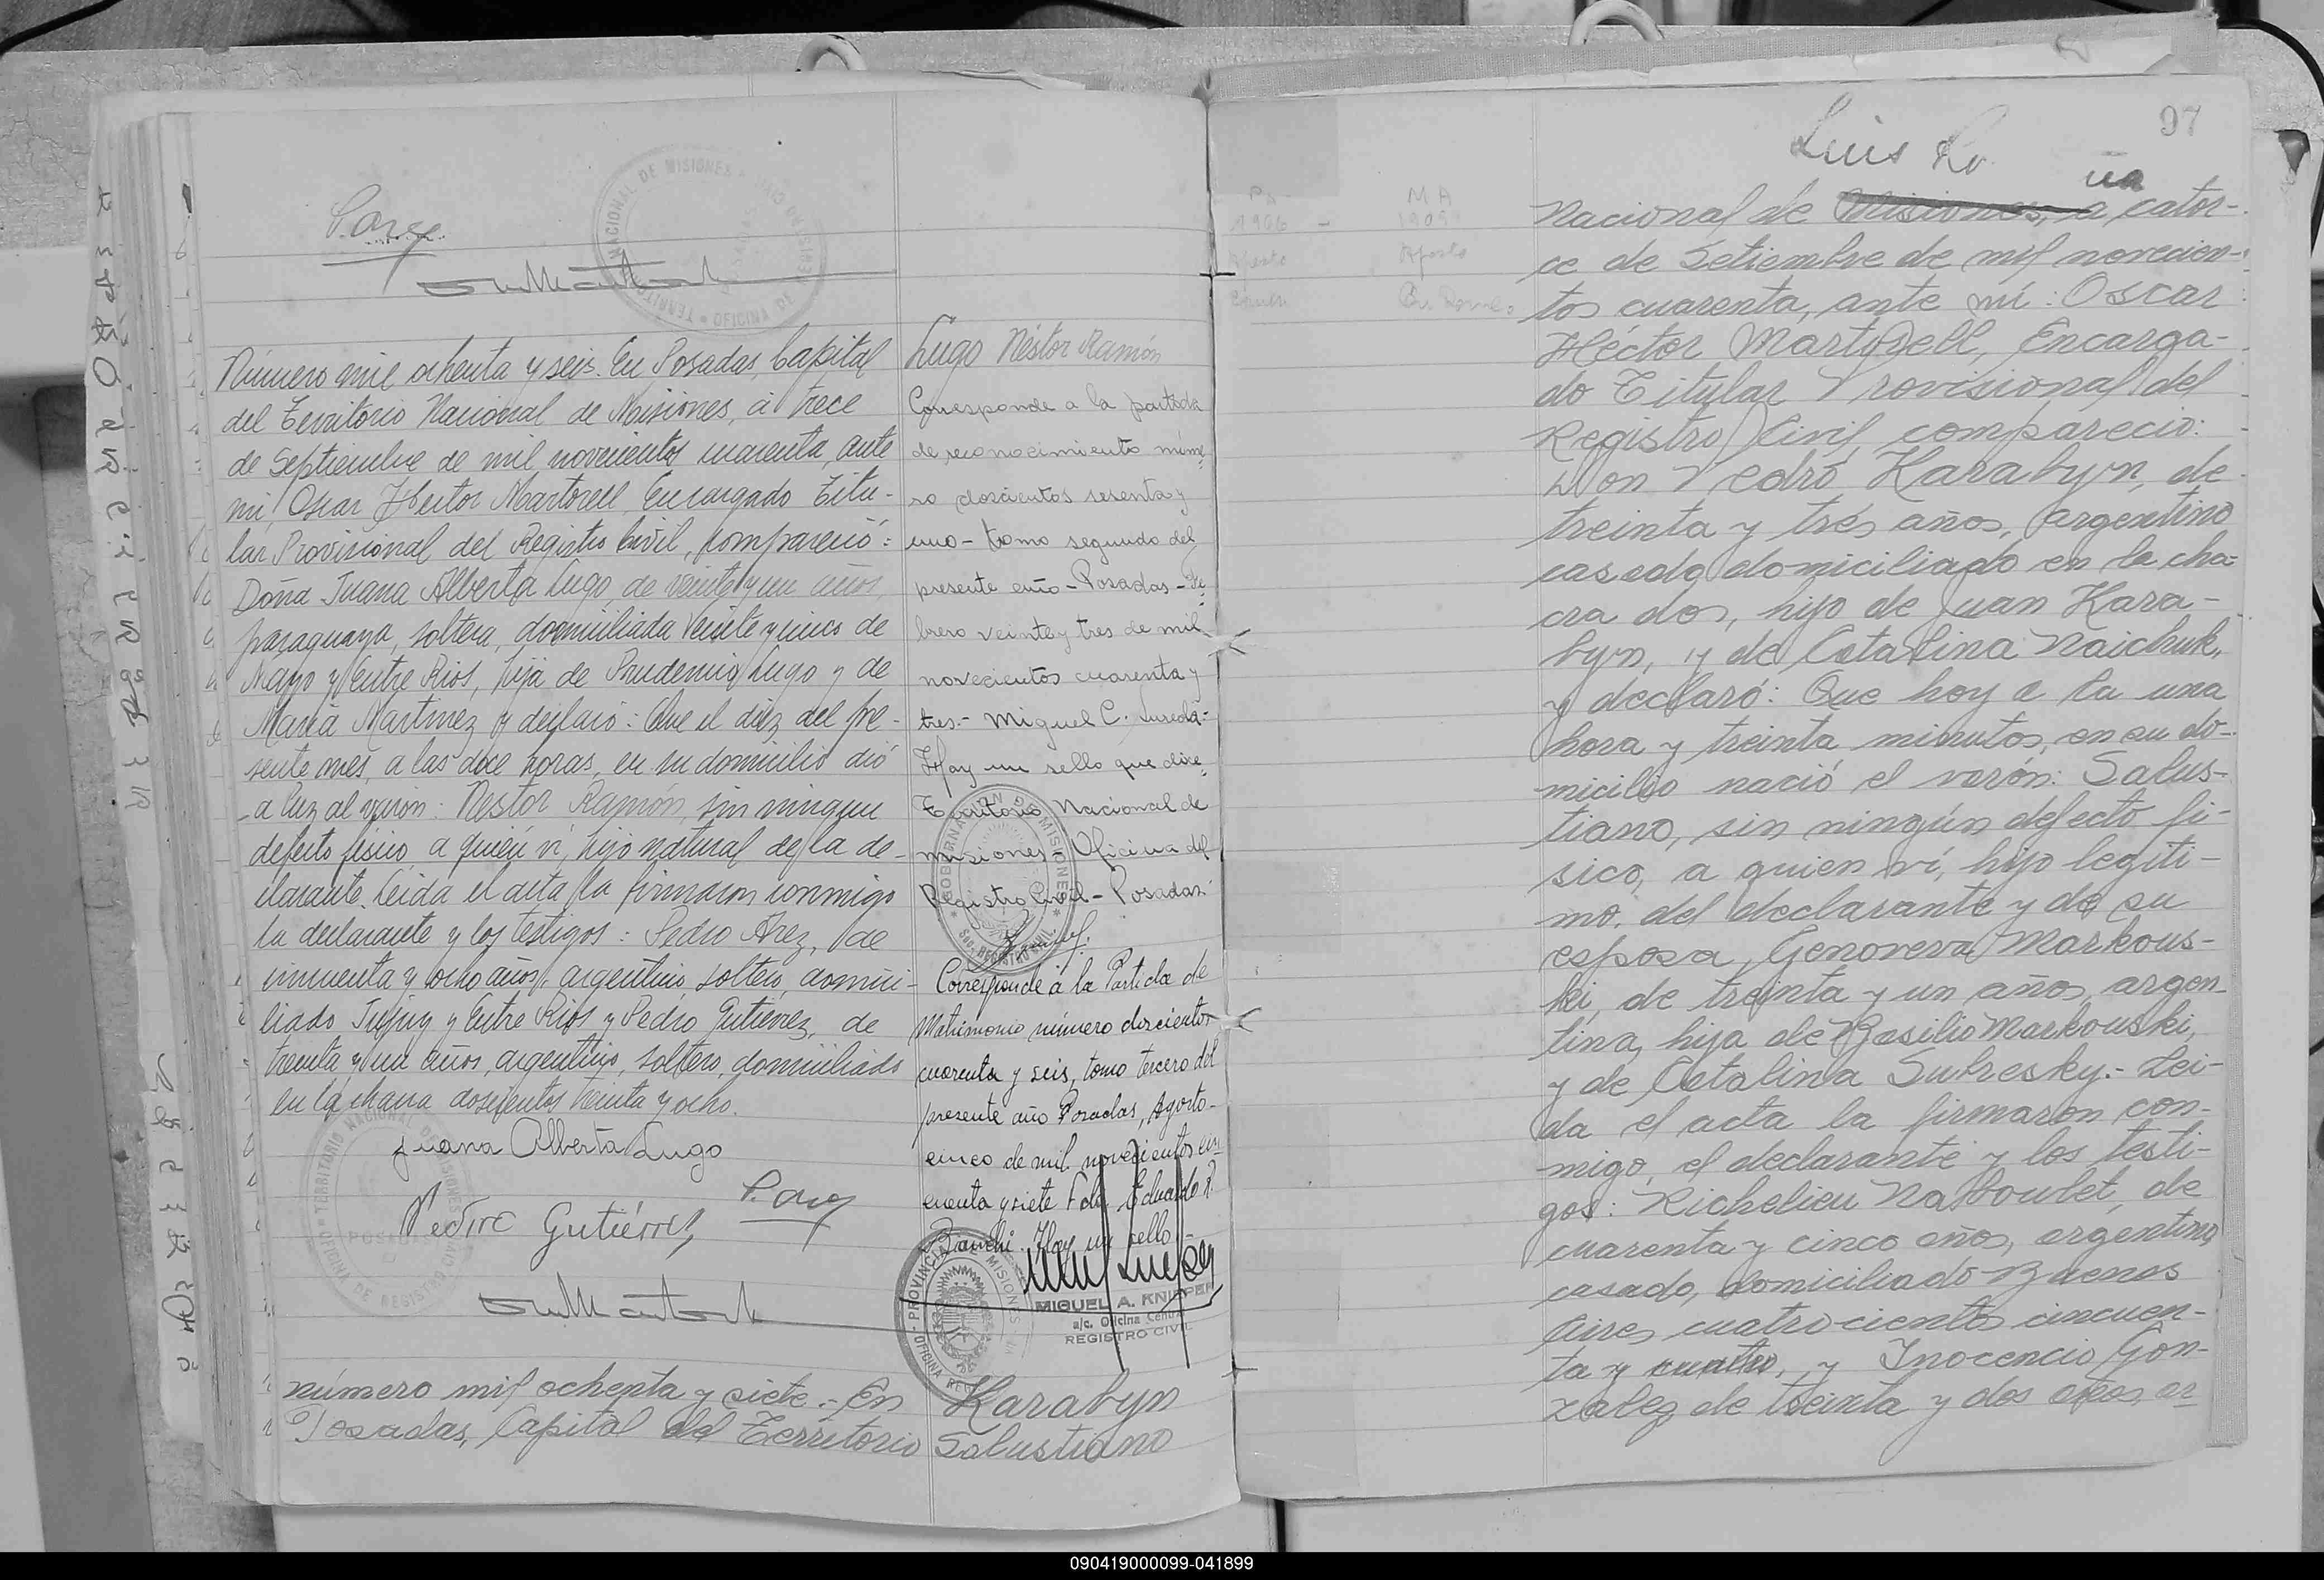 P. Arez
TERRITORIO NACIONAL DE MISIONES
OFICINA DE REGISTRO CIVIL
Número mil ochenta y seis. En Posadas, Capital
del Territorio Nacional de Misiones, á trece
de Septiembre de mil novecientos cuarenta, ante
mí, Oscar Héctor Martorell, Encargado Titu-
lar Provisional del Registro Civil, compareció:
Doña Juana Alberta Lugo, de veinte y un años,
paraguaya, soltera, domiciliada Veinte y cinco de
Mayo y Entre Rios, hija de Prudencio Lugo y de
María Martínez y declaró: Que el diez del pre-
sente mes, a las doce horas, en su domicilio dió
a luz al varón: Nestor Ramón, sin ningun
defecto físico, a quién ví, hijo natural de la de-
clarante. Leida el acta la firmaron conmigo
la declarante y los testigos: Pedro Arez, de
cincuenta y ocho años, argentino, soltero, domici-
liado Jujuy y Entre Rios y Pedro Gutierrez, de
treinta y un años, argentino, soltero, domiciliado
en la chacra doscientos treinta y ocho.
Juana Alberta Lugo
Pedro Gutiérrez
P. Arez
TERRITORIO NACIONAL DE MISIONES
POSADAS
OFICINA DE REGISTRO CIVIL
número mil ochenta y siete.- En
Posadas, Capital del Territorio
Lugo Néstor Ramón
Corresponde a la partida
de reconocimiento núme-
ro doscientos sesenta y
uno - tomo segundo del
presente año - Posadas - Fe-
brero veinte y tres de mil
novecientos cuarenta y
tres.- Miguel C.
Hay un sello que dice:
Territorio Nacional de
Misiones - Oficina del
Registro Civil - Posadas.
GOBERNACION DE MISIONES
REGISTRO CIVIL
Corresponde á la Partida de
Matrimonio número doscientos
cuarenta y seis, tomo tercero del
presente año Posadas, Agosto
cinco de mil novecientos cin-
cuenta y siete Fdo. Eduardo R.
Bianchi. Hay un sello
PROVINCIA DE MISIONES
MIGUEL A. KNIPPER
a/c. Oficina Central
REGISTRO CIVIL
Karabyn
Salustiano
97
Luis
MA
1906 - 1909
Agosto
Nacional de Misiones, a cator-
ce de Setiembre de mil novecien-
tos cuarenta, ante mí: Oscar
Héctor Martorell, Encarga-
do Titular Provisional del
Registro Civil, compareció:
Don Pedro Karabyn, de
treinta y trés años, argentino
casado, domiciliado en la cha-
cra dos, hijo de Juan Kara-
byn, y de Catalina Naichuk,
y declaró: Que hoy a la una
hora y treinta minutos, en su do-
micilio nació el varón: Salus-
tiano, sin ningún defecto fí-
sico, a quien ví, hijo legíti-
mo, del declarante y de su
esposa, Genoveva Markous-
ki, de treinta y un años, argen-
tina, hija de Basilio Markouski,
y de Catalina Subresky.- Lei-
da el acta la firmaron con-
migo, el declarante y los testi-
gos: Richelieu Naboulet, de
cuarenta y cinco años, argentino,
casado, domiciliado Buenos
Aires cuatrocientos cincuen-
ta y cuatro, y Inocencio Gon-
zalez, de treinta y dos años, ar-
090419000099-041899